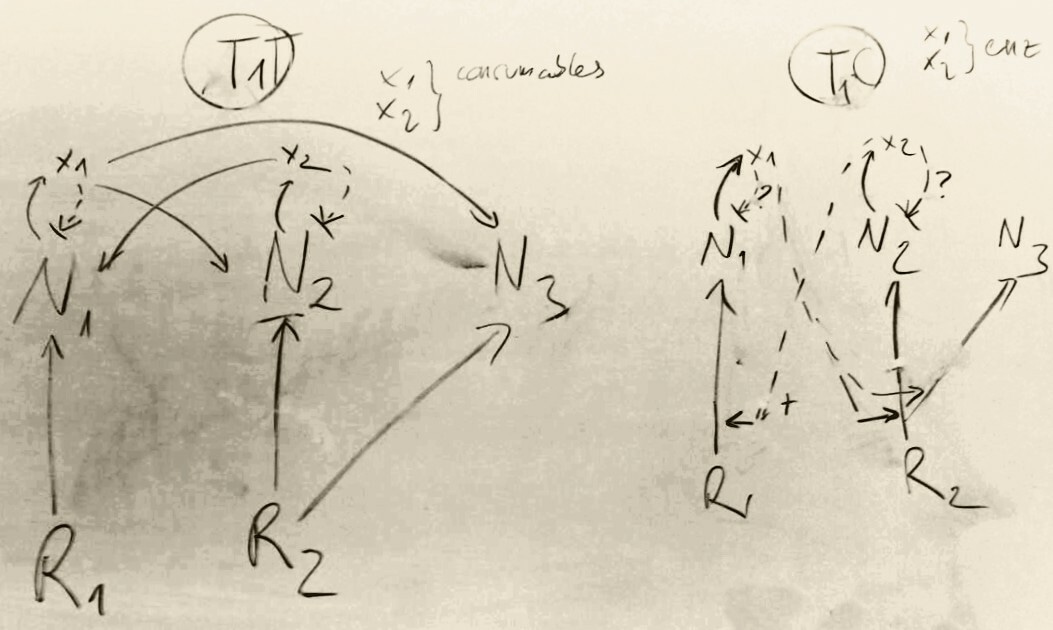 T1T
x1
x2 } consumables
x1
x2
N1
N2
N3
R1
R2
T1C
x1
x2 }
x1
x2
?
?
N1
N2
N3
+
R1
R2